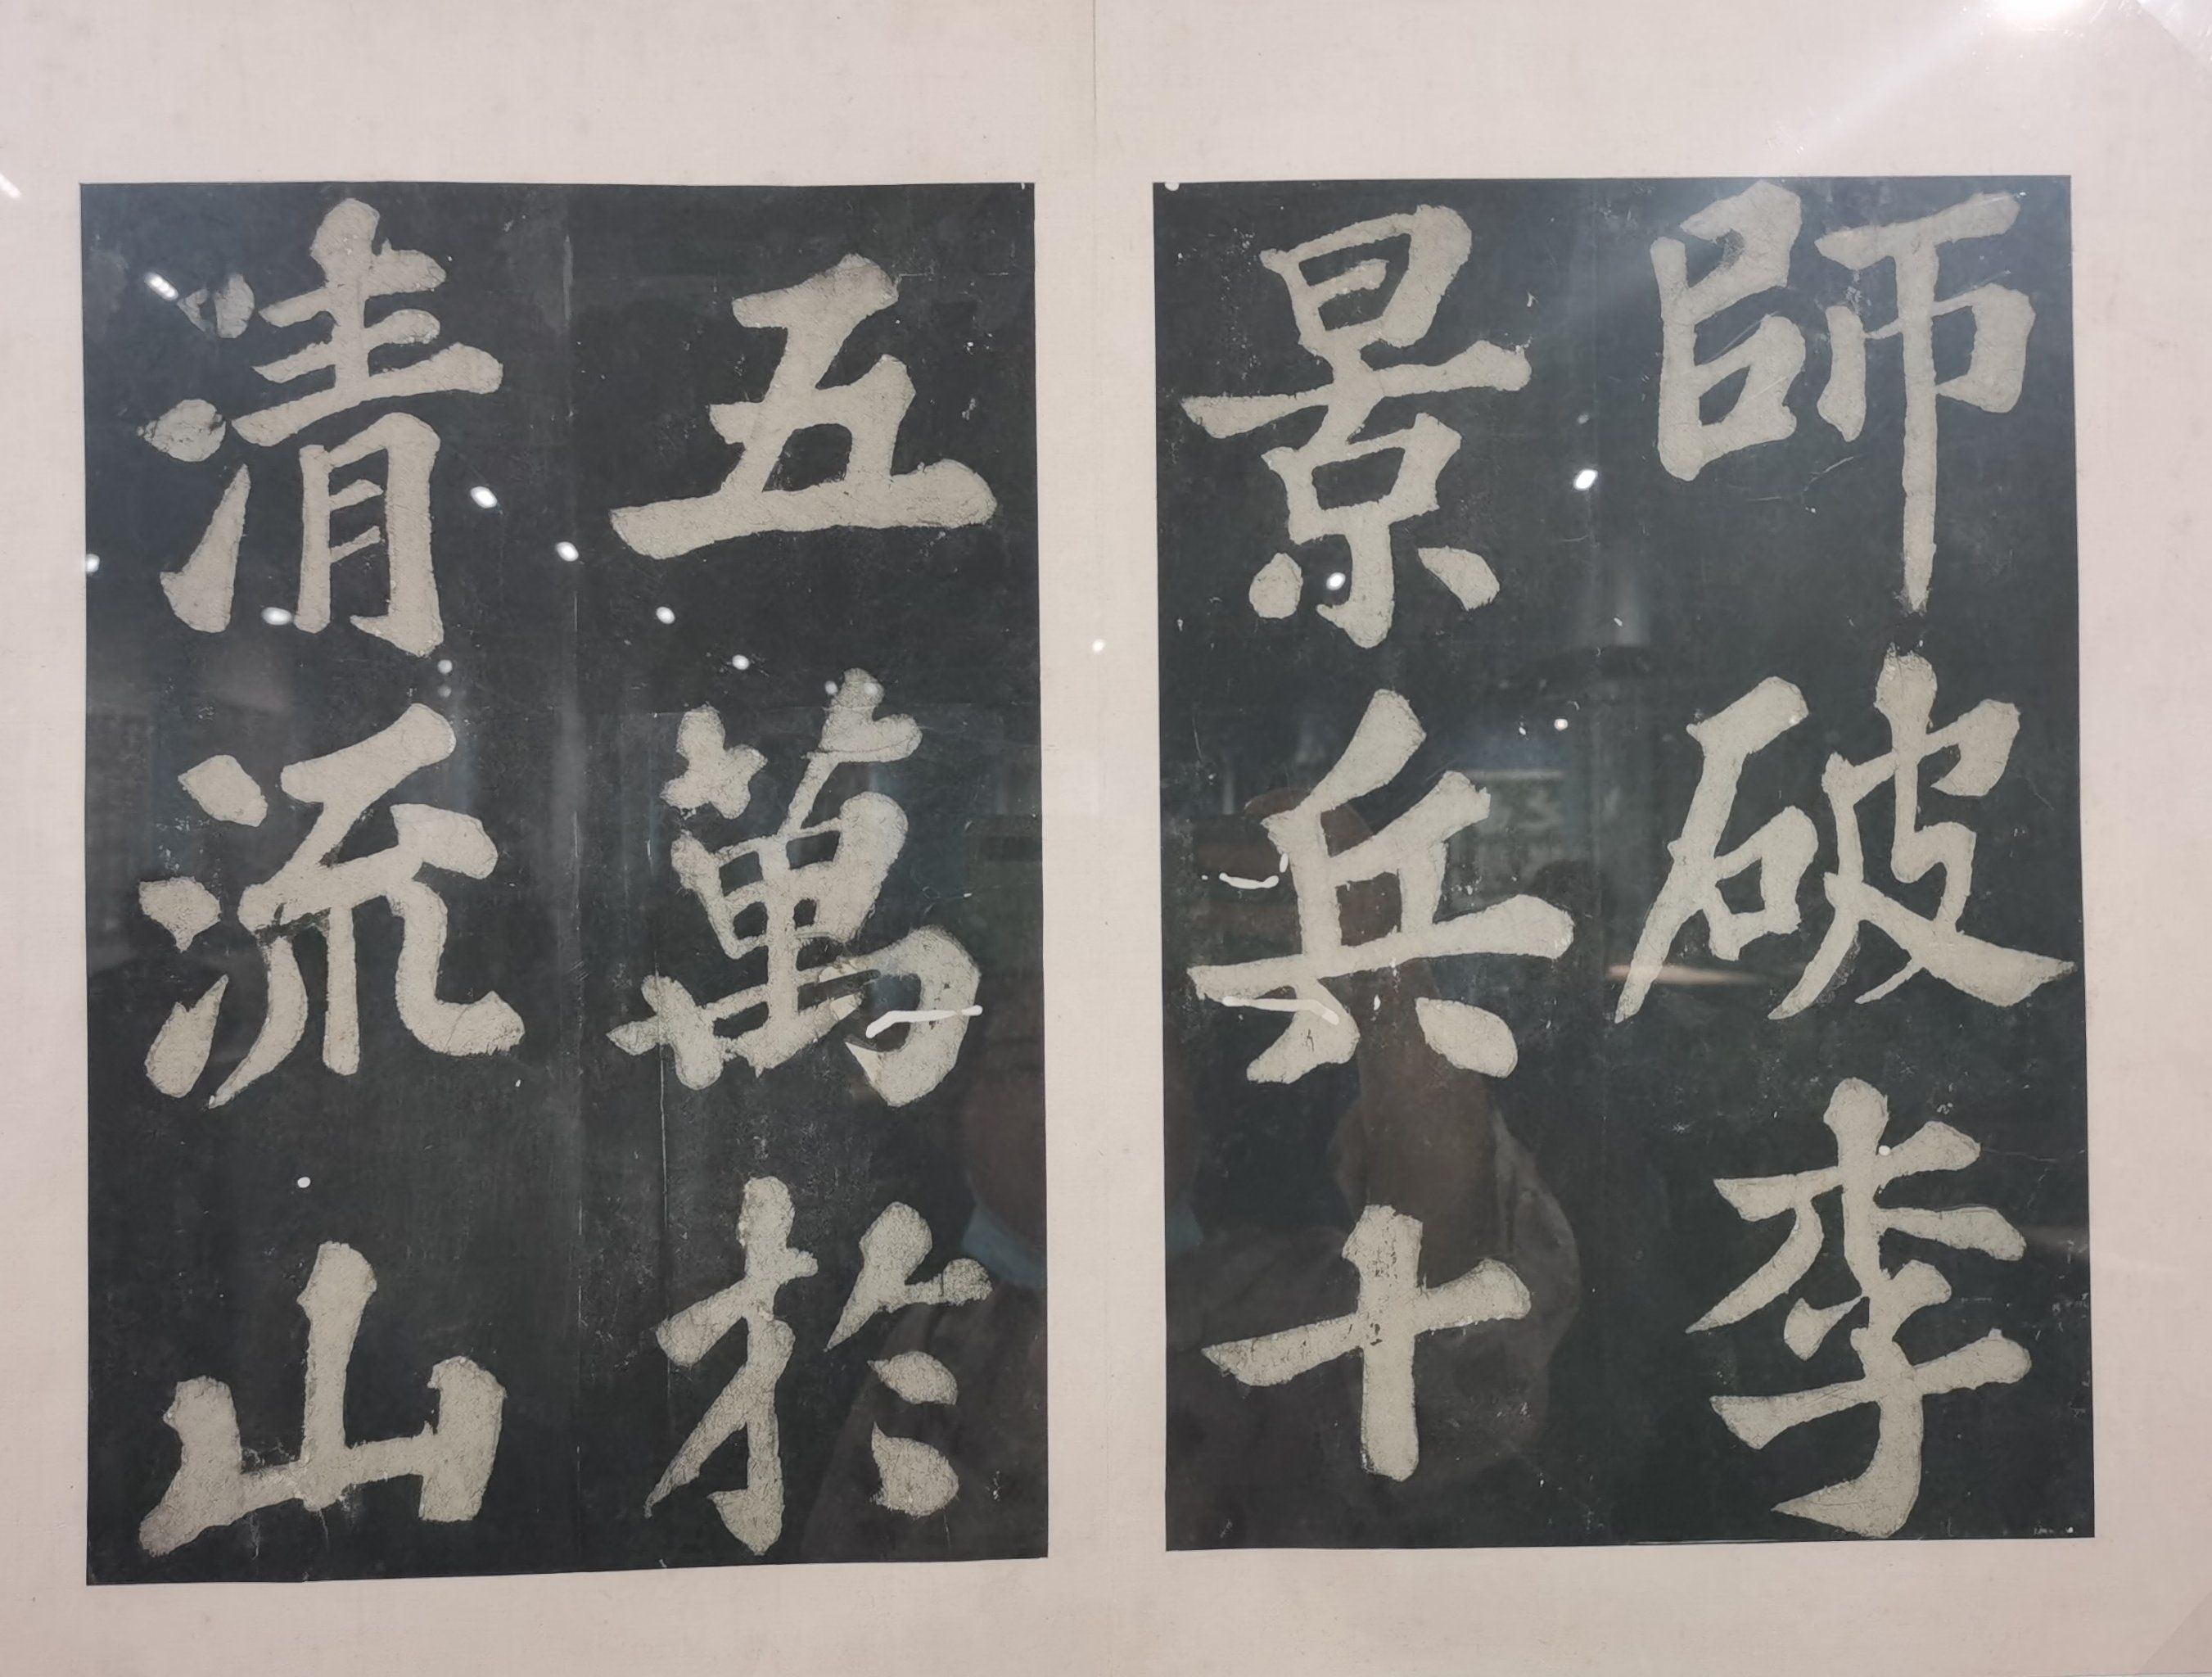 師破李
景兵十
五萬於
清流山